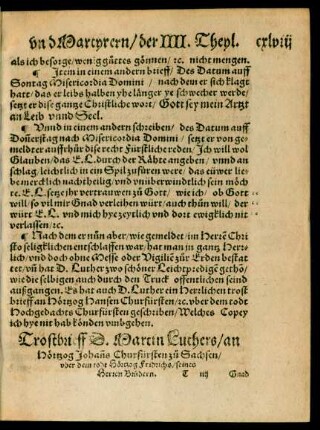 vnd Martyrern/der IIII. Theyl. cxlviij
als ich besorge/wenig gůttes gönnen/ ꝛc. nicht mengen.
¶ Item in einem andern brieff/ Des Datum auff
Sontag Misericordia Domini / nach dem er sich klagt
hatt/das er leibs halben yhe länger ye schwecher werde/
setzet er dise gantze Christliche wort/ Gott sey mein Artzt
an Leib vnnd Seel.
¶ Vnnd in einem andern schreiben/ des Datum auff
Donerstag nach Misericordia Domini / setzt er von ge-
meldter auffrhůr dise recht Fürstliche reden/ Ich will wol
Glauben/das E.L. durch der Rähte angeben/ vnnd an
schlag/leichtlich in ein Spil zufüren were/das eüwer lie-
be merclich nachteilig/vnd vnüberwindtlich sein möch
te. E.L. setze yhr vertrauwen zů Gott/ wie ich/ ob Gott
will/so vil mir Gnad verleihen würt/auch thůn will/ der
würt E.L. vnd mich hye zeytlich vnd dort ewigklich nit
verlassen/ꝛc.
¶ Nach dem er nůn aber/wie gemeldet/im Herrē Chri
sto seligklichen entschlaffen war/hat man in gantz Herr-
lich/vnd doch ohne Messe oder Vigilie zůr Erden bestat
tet/vn̄ hat D. Luther zwo schöner Leichtpredige gethō/
wie die selbigen auch durch den Truck offentlichen seind
außgangen. Es hat auch D. Luther ein Herrlichen trost
brieff an Hörtzog Hansen Churfürsten/ꝛc. vber dem todt
Hochgedachts Churfürsten geschriben/Welches Copey
ich hye nit hab könden vmbgehen.
Trostbrieff D. Martin Luthers/an
Hörtzog Johans Churfürsten zů Sachsen/
vber dem todt Hörtzog Fridrichs/seines
Herren Brüdern. T iiij Gnad